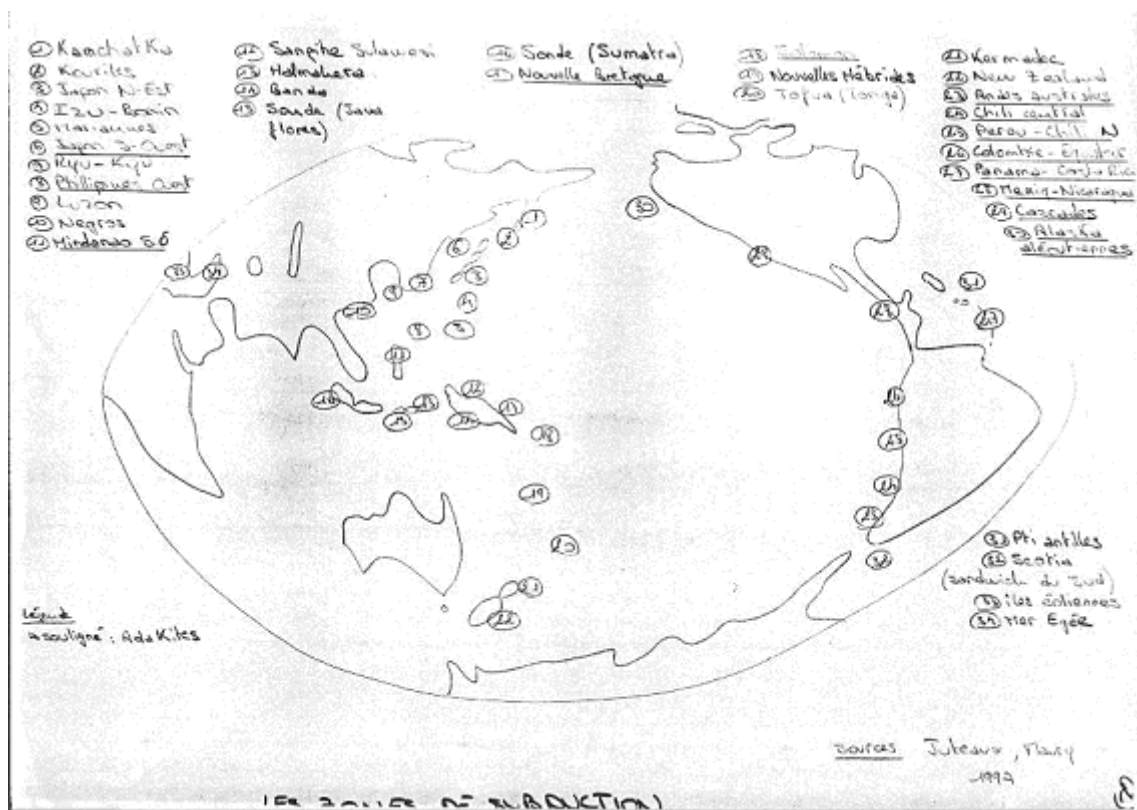 ① Kamchatka
② Kouriles
③ Japon N-Est
④ Izu-Bonin
⑤ Mariannes
⑥ Japon S-Ouest
⑦ Ryu-Kyu
⑧ Philippines Ouest
⑨ Luzon
⑩ Negros
⑪ Mindanao SO
⑫ Sangihe Sulawesi
⑬ Halmahera
⑭ Banda
⑮ Sonde (Java
flores)
⑯ Sonde (Sumatra)
⑰ Nouvelle Bretagne
⑱
⑲ Nouvelles Hébrides
⑳ Tofua (Tonga)
㉑ Kermadec
㉒ New Zealand
㉓ Andes australes
㉔ Chili central
㉕ Perou-Chili N
㉖ Colombie-
㉗ Panama-Costa Rica
㉘ Mexiq-Nicaragua
㉙ Cascades
Alaska
aléoutiennes
㉛ Pti antilles
㉜ Scotia
(sandwich du Sud)
㉝ iles éoliennes
㉞ Mer Egée
légende
souligné : Adakites
sources Juteaux, Maury
1997
LES ZONES DE SUBDUCTION